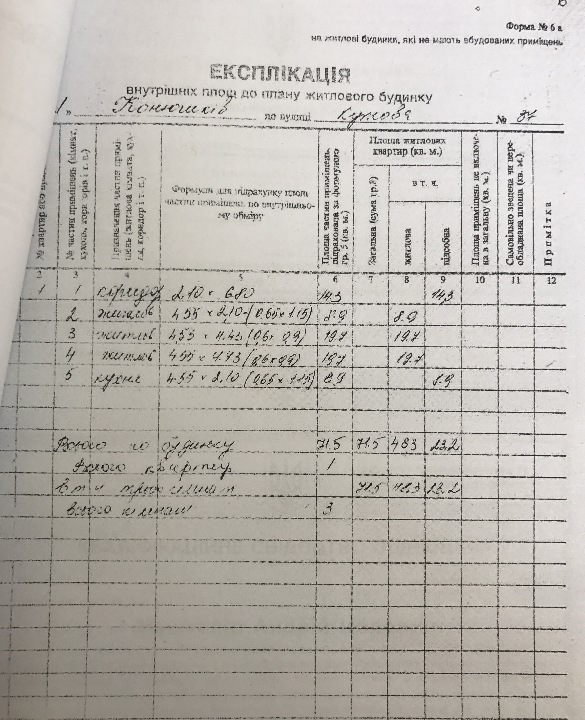 Форма № 6 а
на житлові будинки, які не мають вбудованих приміщень
ЕКСПЛІКАЦІЯ
внутрішніх площ до плану житлового будинку
по вулиці № 87
№ частин приміщень (кімнат, кухонь, коридорів і т. п.)
Призначення частин приміщень (житлова кімната, кухня, коридор і т. п.)
Формули для підрахунку площ частин приміщень по внутрішньому обміру
Площа частин приміщень, підрахована за формулою гр. 5 (кв. м.)
Площа житлових квартир (кв. м.)
Загальна (сума гр.8)
в т. ч.
житлова
підсобна
Площа приміщень не включена в загальну (кв. м.)
Самовільно зведена чи переобладнана площа (кв. м.)
Примітка
2 3 4 5 6 7 8 9 10 11 12
1 1 коридор 2.10 × 6.80 14.3 14.3
2 житлов 4.55 × 2.10-(0,65×1.15) 8.9 8.9
3 житлов 4.55 × 4.45 (0,6× 0,9) 19.7 19.7
4 житлов 4.55 × 4.43 19.7 19.7
5 кухня 4.55 × 2.10 (0,65× 1.15) 8.9 8.9
Всього по будинку 71.5 71.5 48.3 23.2
Всього квартир 1
71.5 48.3 23.2
Всього кімнат 3